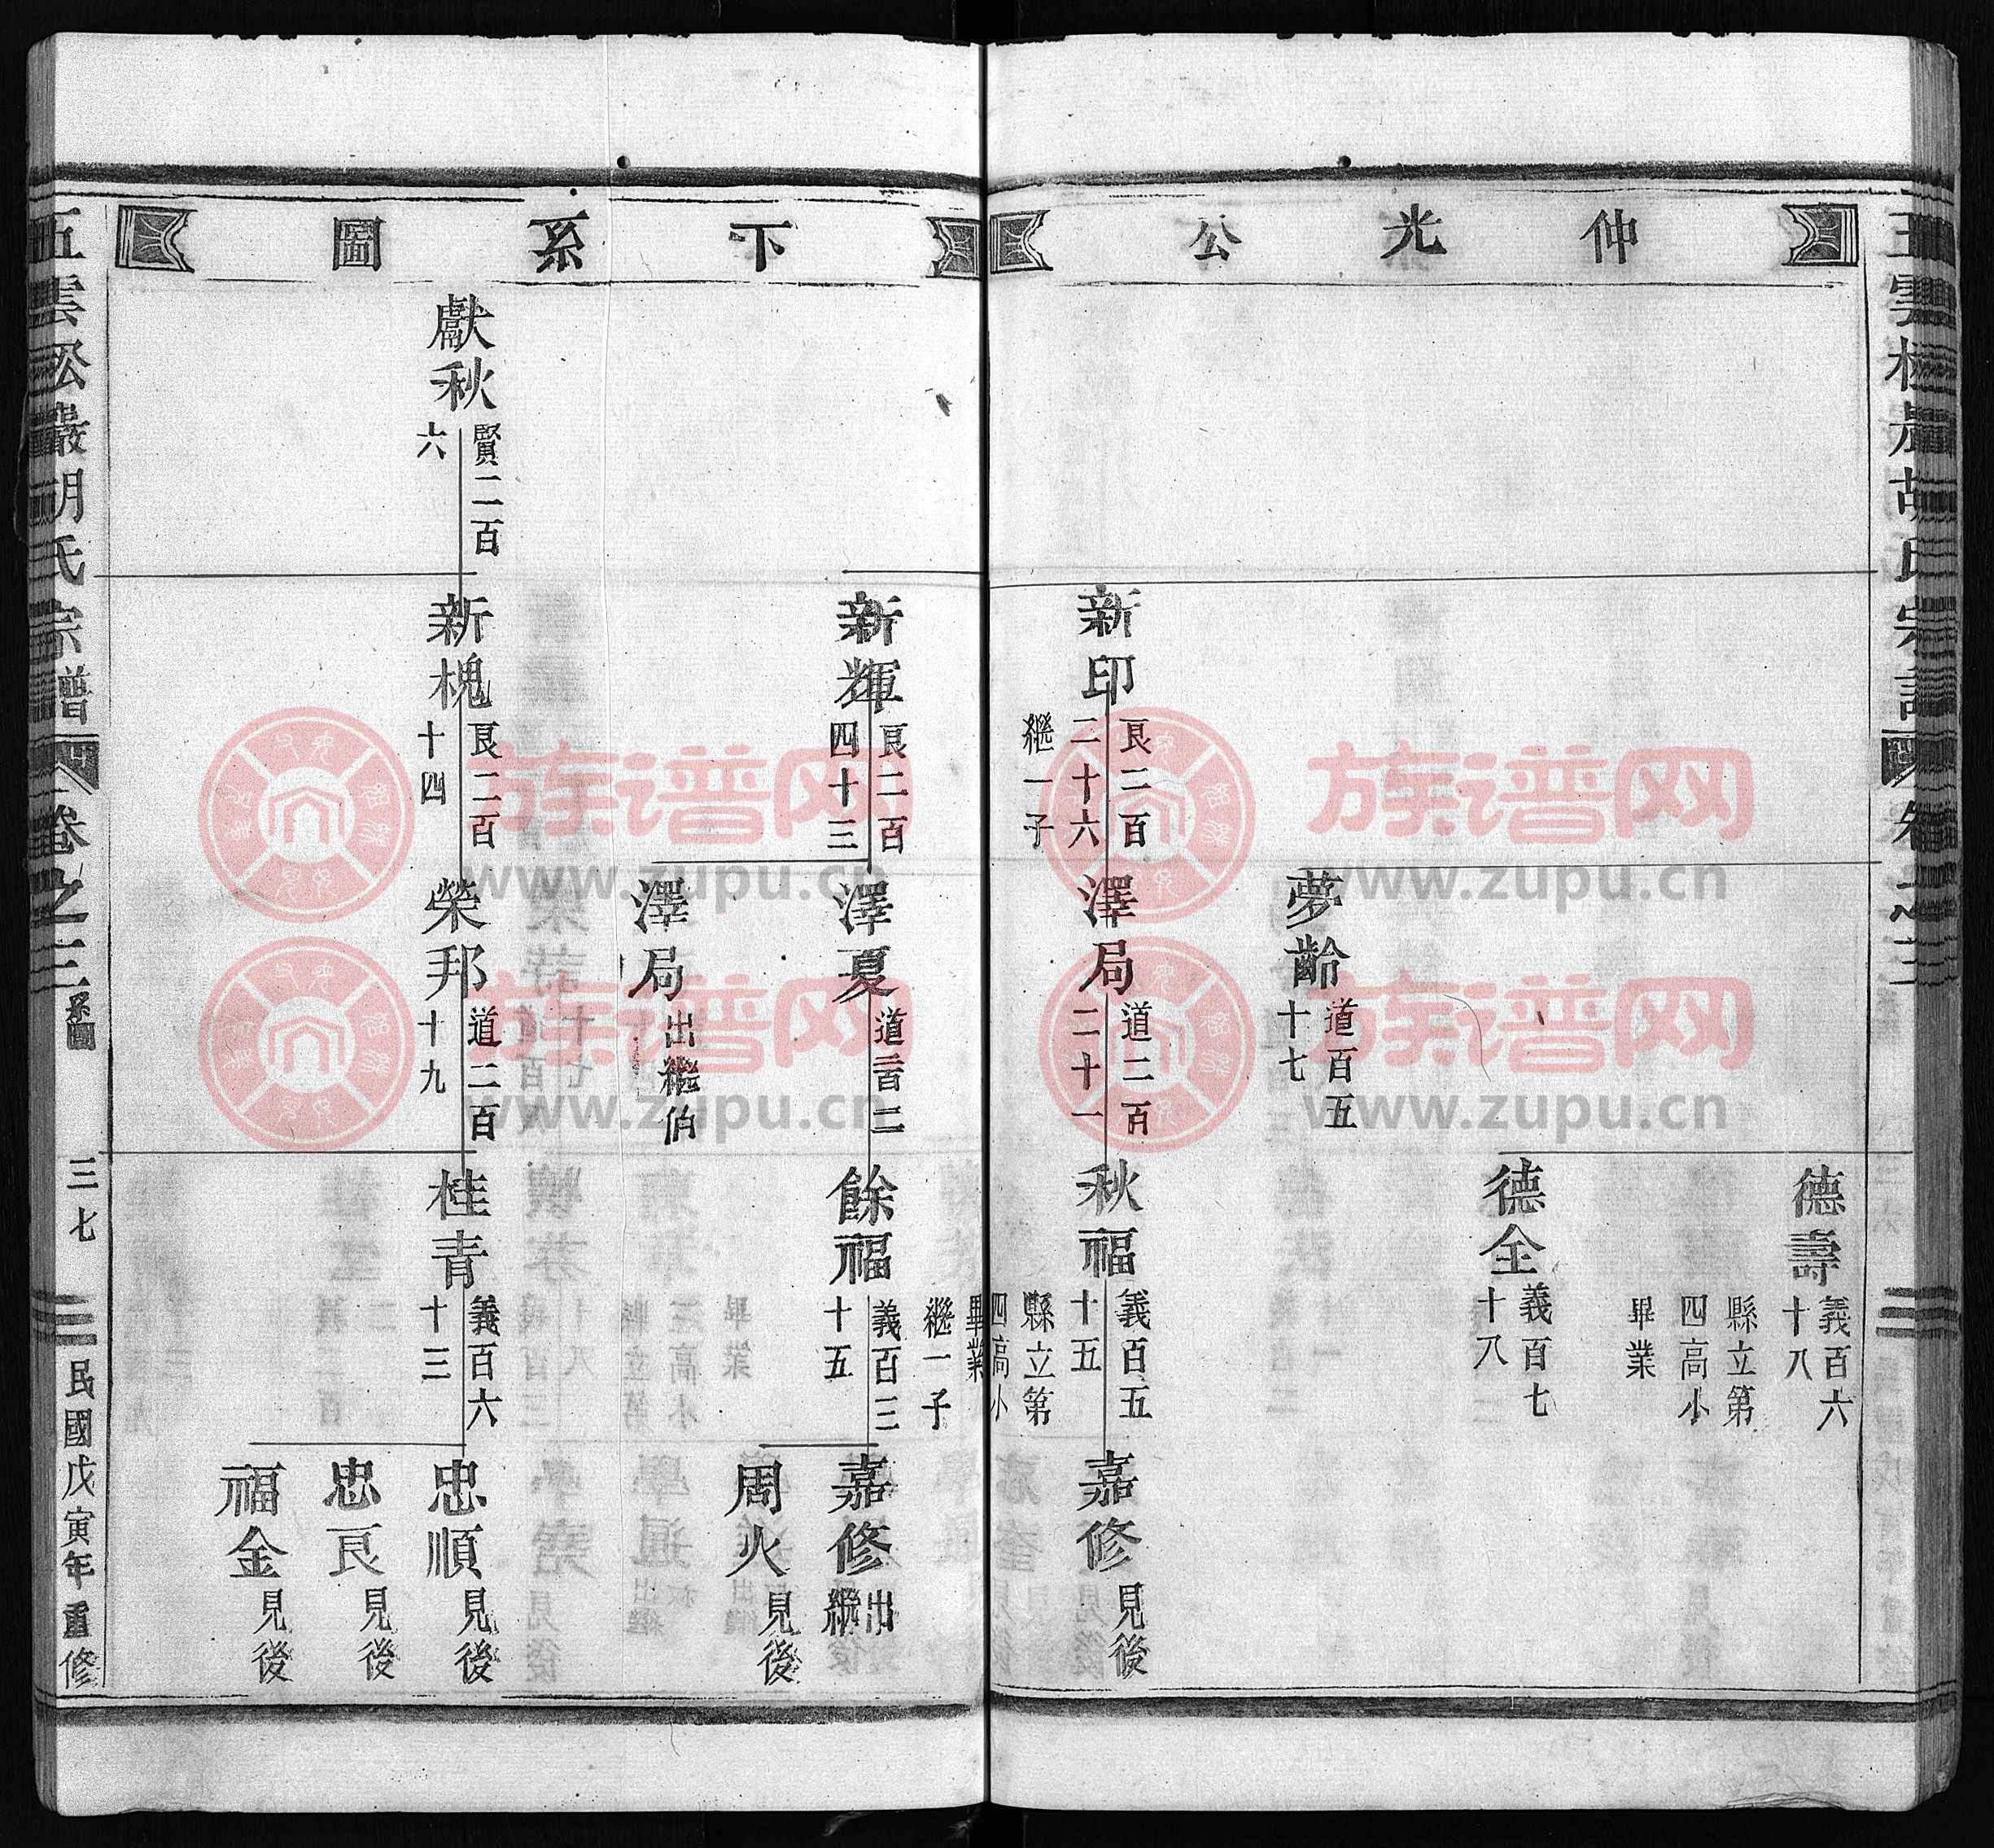 仲光公
德壽 義百六十八
縣立第四高小畢業
德全 義百七十八
夢齡 道百五十七
新印 良二百二十六
繼一子
澤局 道二百二十一
秋福 義百五十五
縣立第四高小畢業
繼一子
嘉修 見後
下系圖
新輝 良二百四十三
澤夏 道二百二
餘福 義百三十五
嘉修 出繼
周火 見後
澤局 出繼伯
獻秋 賢二百六
新槐 良二百十四
榮邦 道二百十九
桂青 義百六十三
忠順 見後
忠良 見後
福金 見後
五雲松巖胡氏宗譜 卷之三 系圖 三七 民國戊寅年重修
族谱网
www.zupu.cn
族谱网
www.zupu.cn
族谱网
www.zupu.cn
族谱网
www.zupu.cn